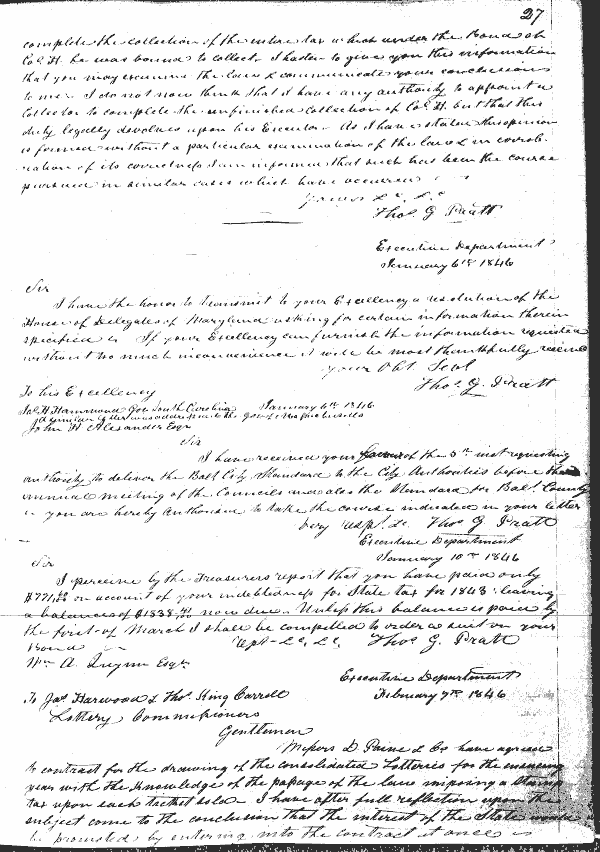 27
complete the collection of the entire tax which under the Bond of
Col. H. he was bound to collect. I hasten to give you this information
that you may examine the laws & communicate your conclusions
to me. I do not now think that I have any authority to appoint a
Collector to complete the unfinished collection of Col. H. but that this
duty legally devolves upon his Executor. As I have stated this opinion
is formed without a particular examination of the laws & in corrob-
oration of its correctness I am informed that such has been the course
pursued in similar cases which have occurred
Yours &c. &c
Tho. G Pratt
Executive Department
January 6th 1846
Sir
I have the honor to transmit to your Excellency a resolution of the
House of Delegates of Maryland asking for certain information therein
specified. If your Excellency can furnish the information requested
without too much inconvenience it will be most thankfully received
your Obt Servt
Tho. G. Pratt
To his Excellency
Jas. H Hammond Gov. South Carolina January 6th 1846
A similar letter was addressed to the Gov. of Massachusetts
John H Alexander Esqr
Sir
I have received your favour of the 5th inst requesting
authority to deliver the Balt City Standard to the City Authorities before the
annual meeting of the Councils and also the Standard for Balt. County
& you are hereby Authorised to take the course indicated in your letter
very respt. &c. Tho. G Pratt
Executive Department
January 10th 1846
Sir
I perceive by the Treasurers report that you have paid only
on account of your indebtedness for State tax for 1843: leaving
a balance of now due. Unless this balance is paid by
the first of March I shall be compelled to order a suit on your
Bond Respt &c, &c, Tho. G. Pratt
Wm A. Esqr.
Executive Department
February 7th 1846
To Jas. Harwood & Tho. King Carroll
Lottery Commissioners
Gentlemen
Messrs D. Paine & Co have agreed
to contract for the drawing of the consolidated Lotteries for the ensuing
year with the knowledge of the passage of the law imposing a Stamp
tax upon each ticket sold. I have after full reflection upon the
subject come to the conclusion that the interest of the State would
be promoted by entering into the contract at once